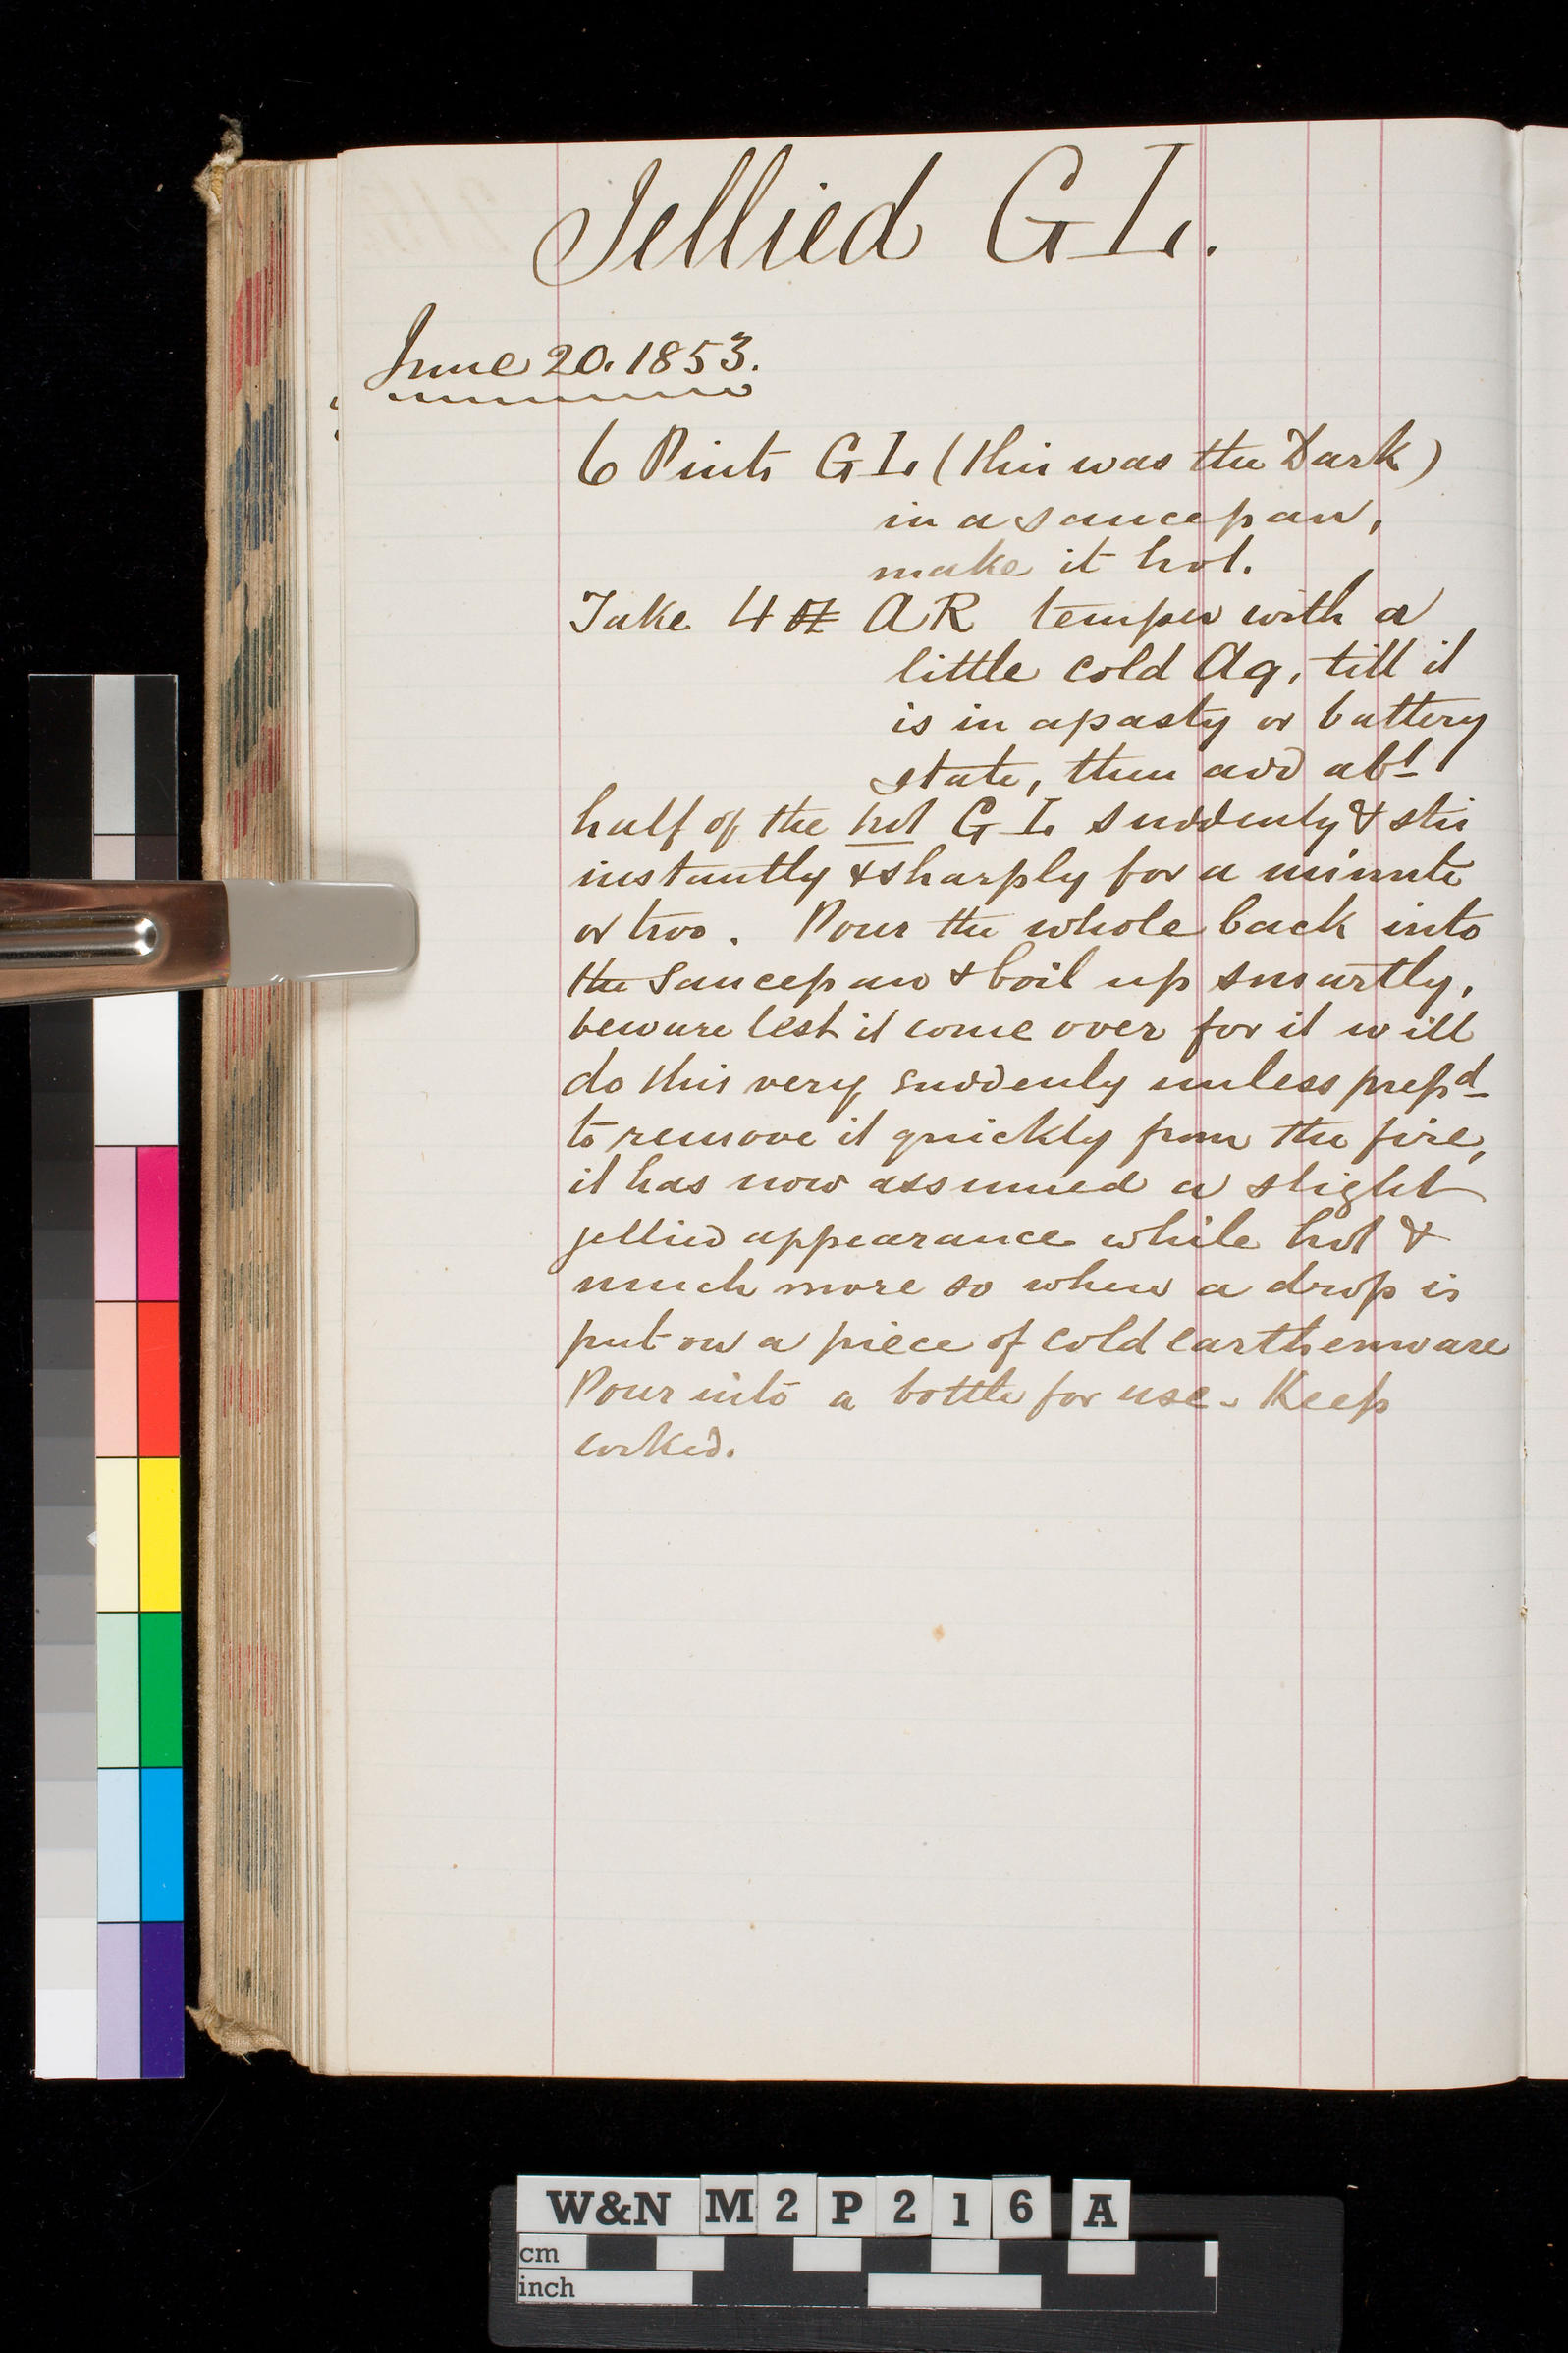 Jellied G L.
June 20. 1853.
6 Pints G L (this was the Dark)
in a saucepan,
make it hot.
Take 4 ℥ AR temper with a
little cold Aq, till it
is in a pasty or battery
state, then add abt
half of the hot G L suddenly & stir
instantly & sharply for a minute
or two. Pour the whole back into
the saucepan & boil up smartly,
beware lest it come over for it will
do this very suddenly unless prepd
to remove it quickly from the fire,
it has now assumed a slight
jellied appearance while hot &
much more so when a drop is
put on a piece of cold earthenware
Pour into a bottle for use. Keep
corked.
W&N M2P216A
cm
inch